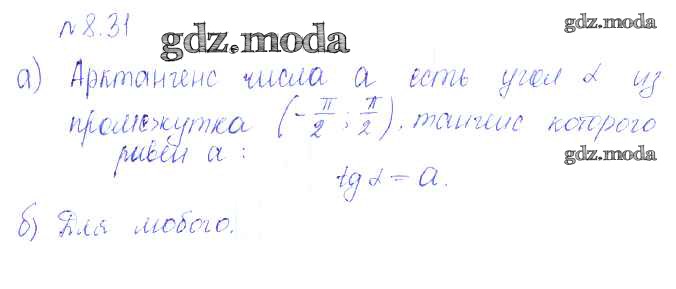 №8.31
gdz.moda
gdz.moda
а) Арктангенс числа a есть угол α из
промежутка (-π/2; π/2), тангенс которого
равен a:
gdz.moda
tg α = a.
б) Для любого.